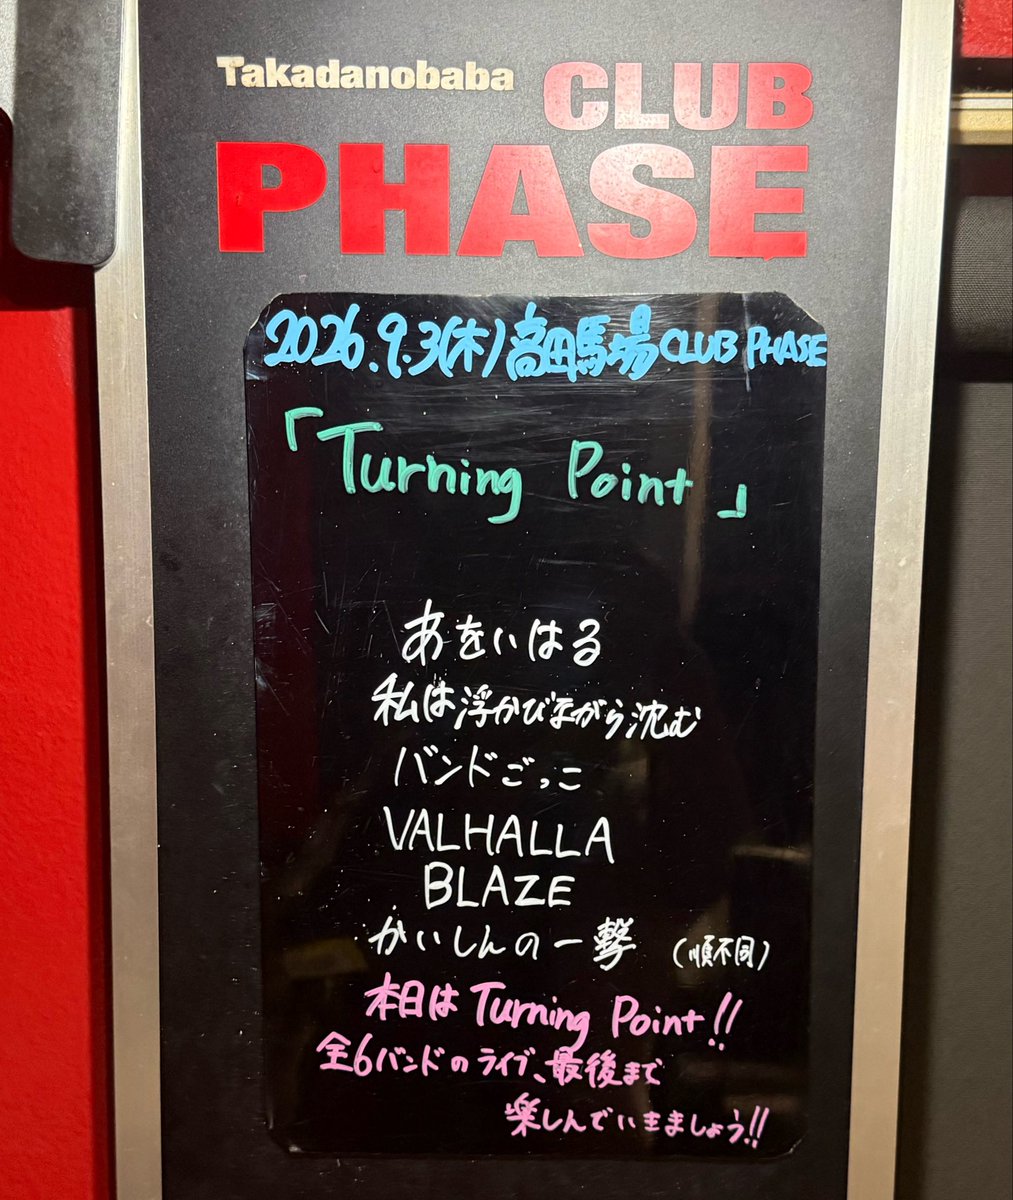 Takadanobaba CLUB
PHASE
2026.9.3(木)高田馬場CLUB PHASE
「Turning Point」
あをいはる
私は浮かびながら沈む
バンドごっこ
VALHALLA
BLAZE
かいしんの一撃 (順不同)
本日はTurning Point!!
全6バンドのライブ、最後まで
楽しんでいきましょう!!